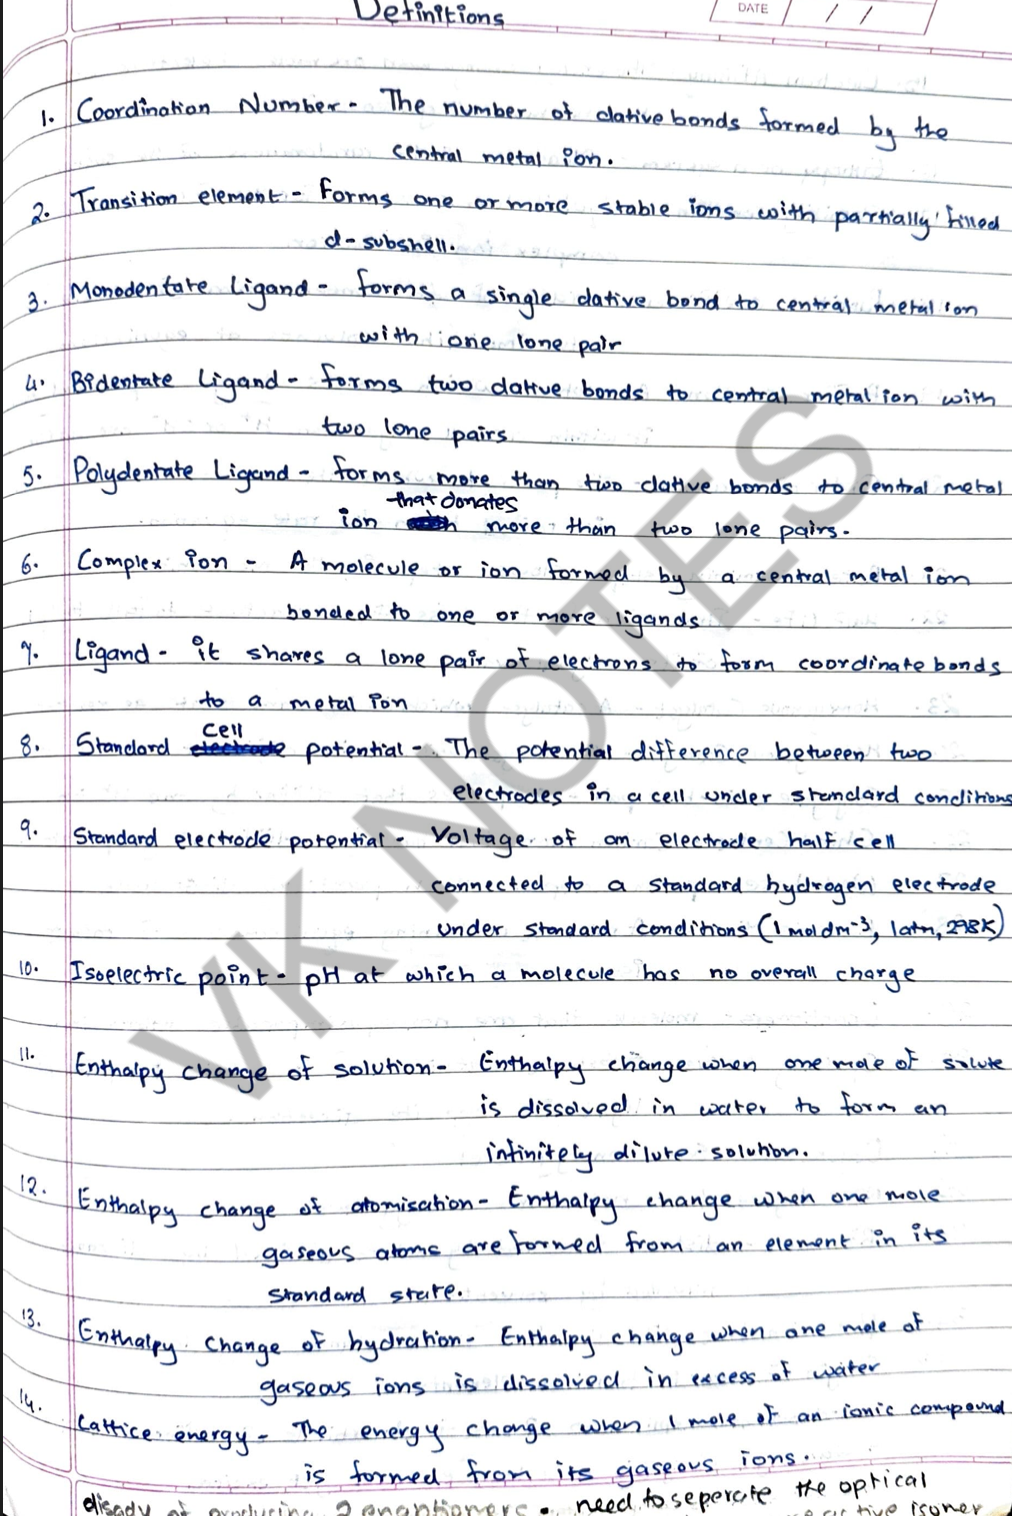 Definitions
DATE / /
1. Coordination Number - The number of dative bonds formed by the
central metal ion.
2. Transition element - Forms one or more stable ions with partially filled
d-subshell.
3. Monodentate Ligand - forms a single dative bond to central metal ion
with one lone pair
4. Bidentate Ligand - forms two dative bonds to central metal ion with
two lone pairs
5. Polydentate Ligand - forms more than two dative bonds to central metal
that donates
ion more than two lone pairs.
6. Complex ion - A molecule or ion formed by a central metal ion
bonded to one or more ligands
7. Ligand - it shares a lone pair of electrons to form coordinate bonds
to a metal ion
cell
8. Standard electrode potential - The potential difference between two
electrodes in a cell under standard conditions
9. Standard electrode potential - Voltage of an electrode half cell
connected to a standard hydrogen electrode
under standard conditions (1 moldm-3, 1atm, 298K)
10. Isoelectric point - pH at which a molecule has no overall charge
11. Enthalpy change of solution - Enthalpy change when one mole of solute
is dissolved in water to form an
infinitely dilute solution.
12. Enthalpy change of atomisation - Enthalpy change when one mole
gaseous atoms are formed from an element in its
standard state.
13. Enthalpy change of hydration - Enthalpy change when one mole of
gaseous ions is dissolved in excess of water
14. Lattice energy - The energy change when 1 mole of an ionic compound
is formed from its gaseous ions.
disadv of producing 2 enantiomers • need to seperate the optical
active isomer
VK NOTES